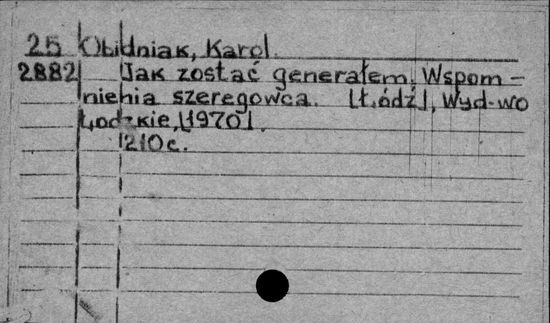 25 Obidniak, Karol.
2882 Jak zostać generałem. Wspom-
nienia szeregowca. [Łódź], Wyd-wo
Łodzkie, [1970].
210 c.